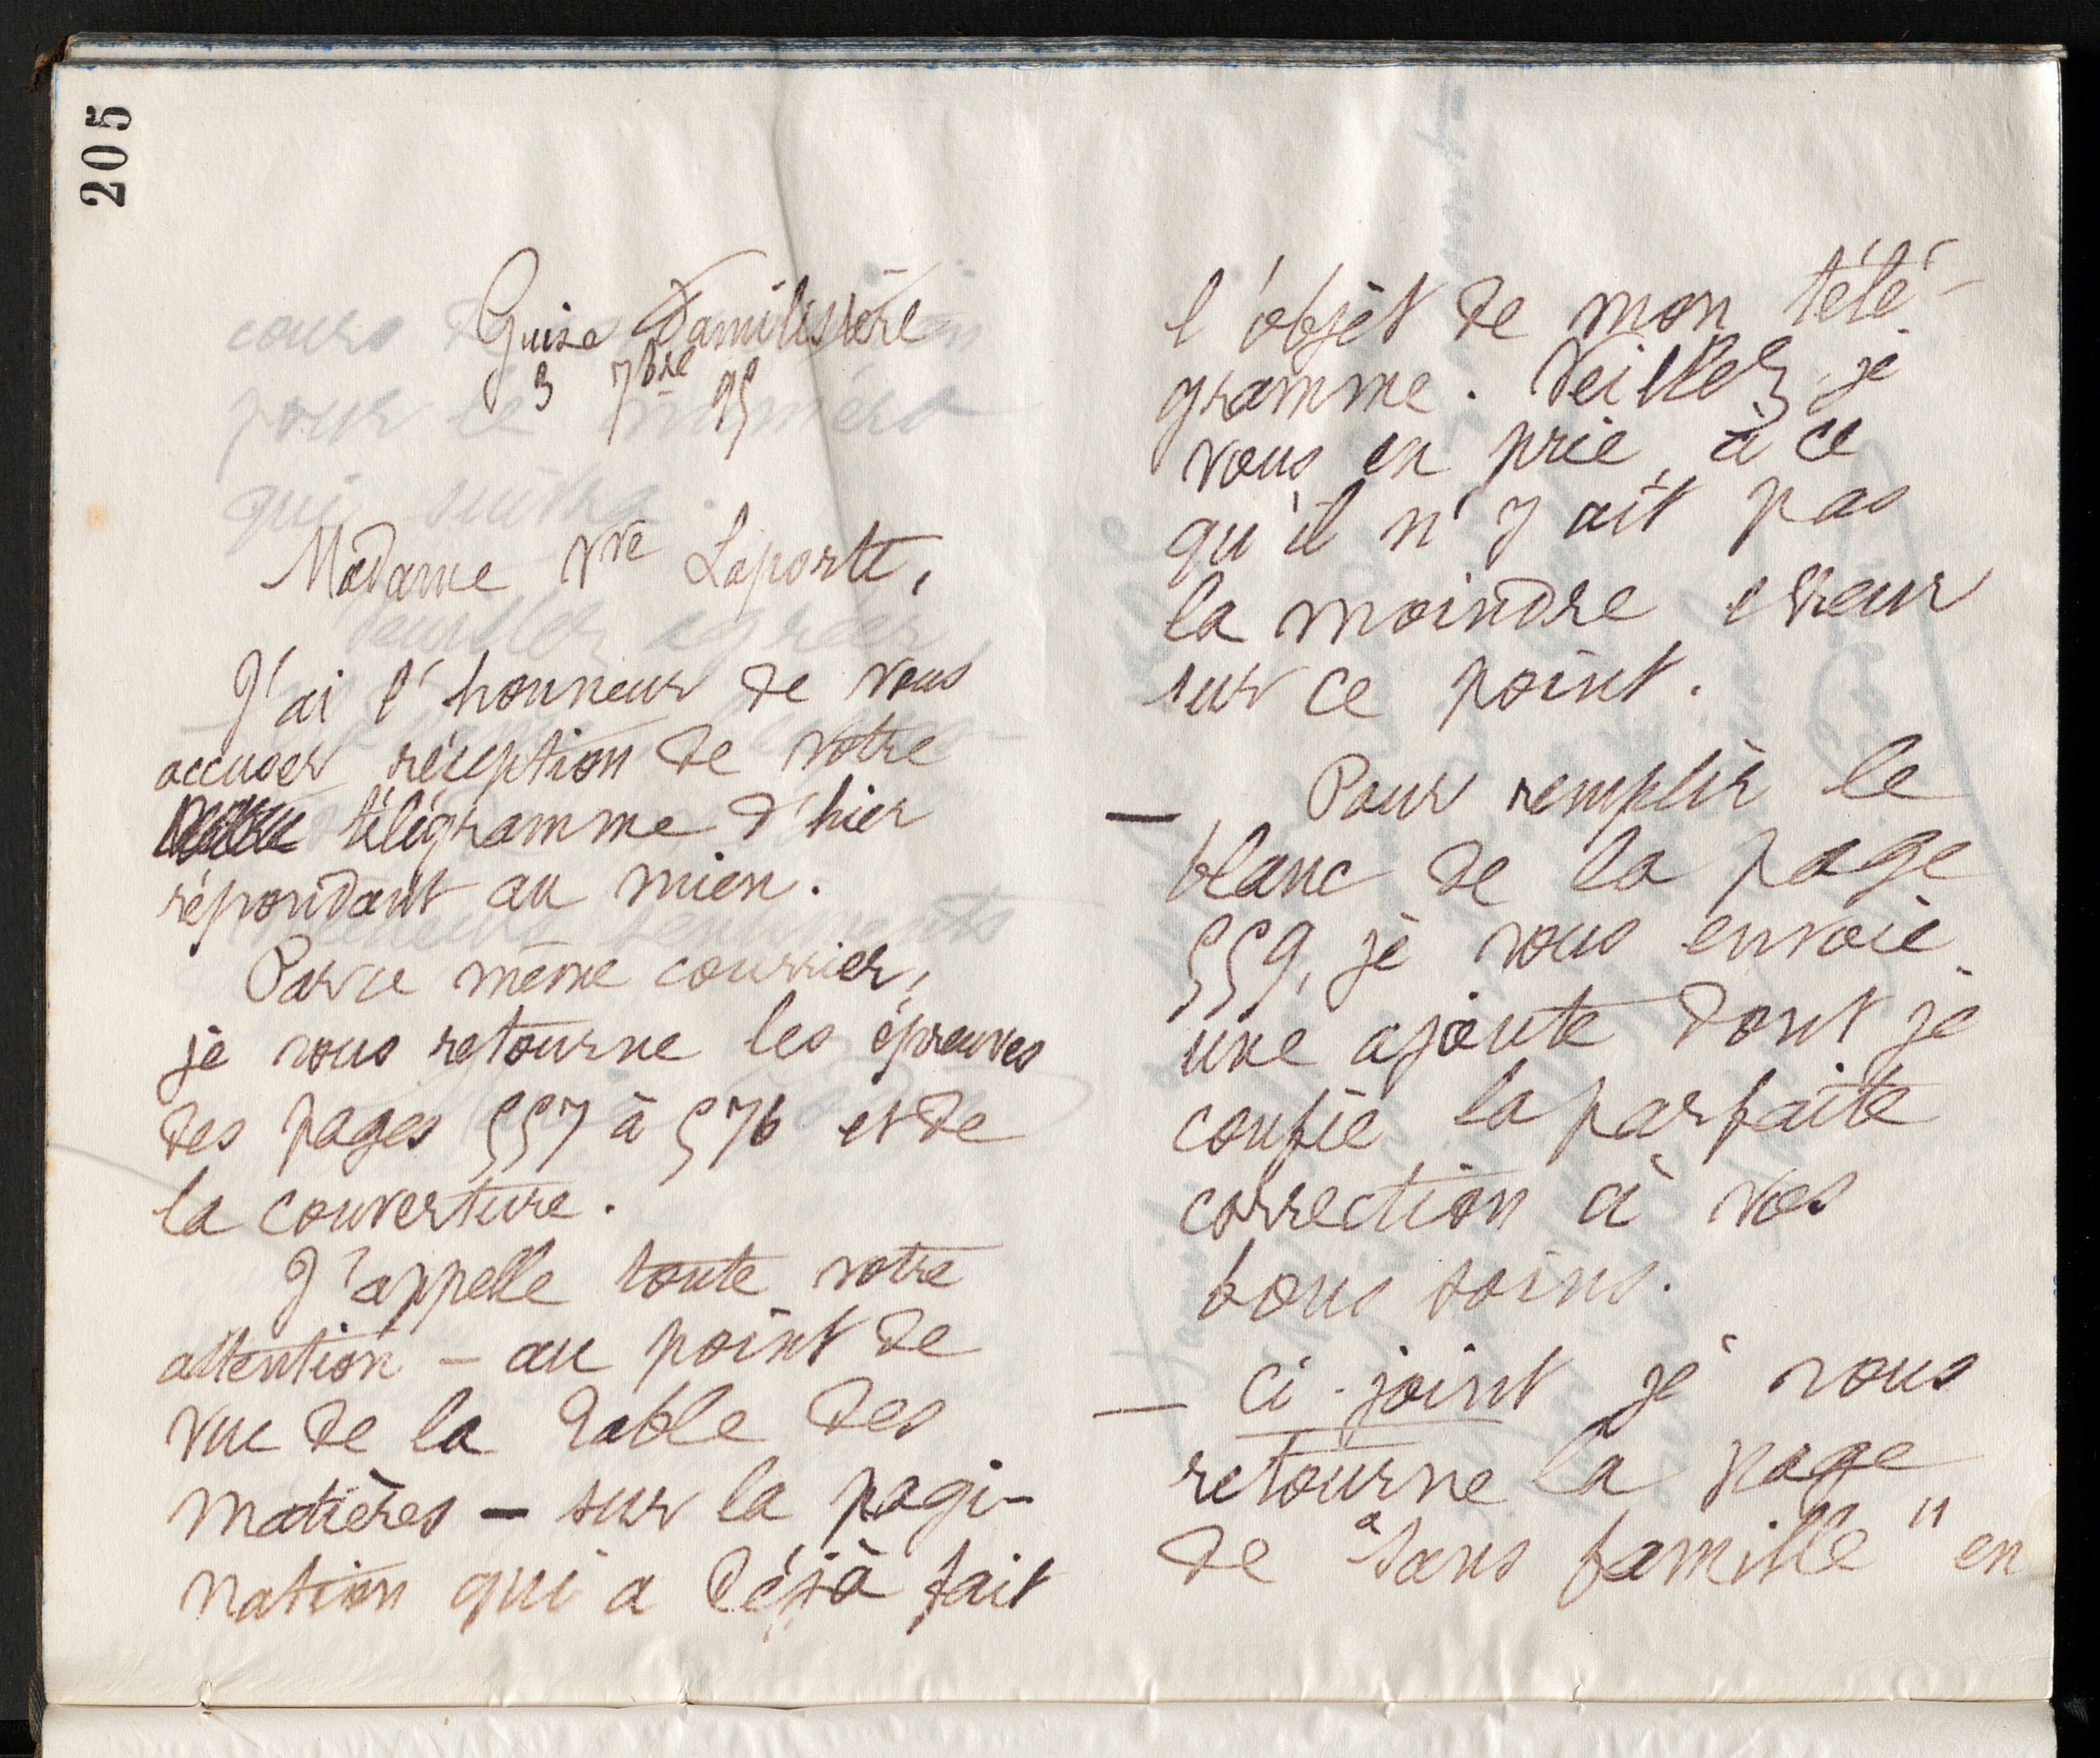 205
Guise Familistère
3 7bre 95
Madame Vve Laporte,
J'ai l'honneur de vous
accuser réception de votre
télégramme d'hier
répondant au mien.
Par ce même courrier,
je vous retourne les épreuves
des pages 557 à 576 et de
la couverture.
J'appelle toute votre
attention – au point de
vue de la Table des
matières – sur la pagi-
nation qui a déjà fait
l'objet de mon télé-
gramme. Veillez, je
vous en prie, à ce
qu'il n'y ait pas
la moindre erreur
sur ce point.
— Pour remplir le
blanc de la page
559, je vous envoie
une ajoute dont je
confie la parfaite
correction à vos
bons soins.
— Ci-joint je vous
retourne la page
de "Sans famille" en
cours
pour le numéro
qui suivra.
Veuillez agréer
sentiments